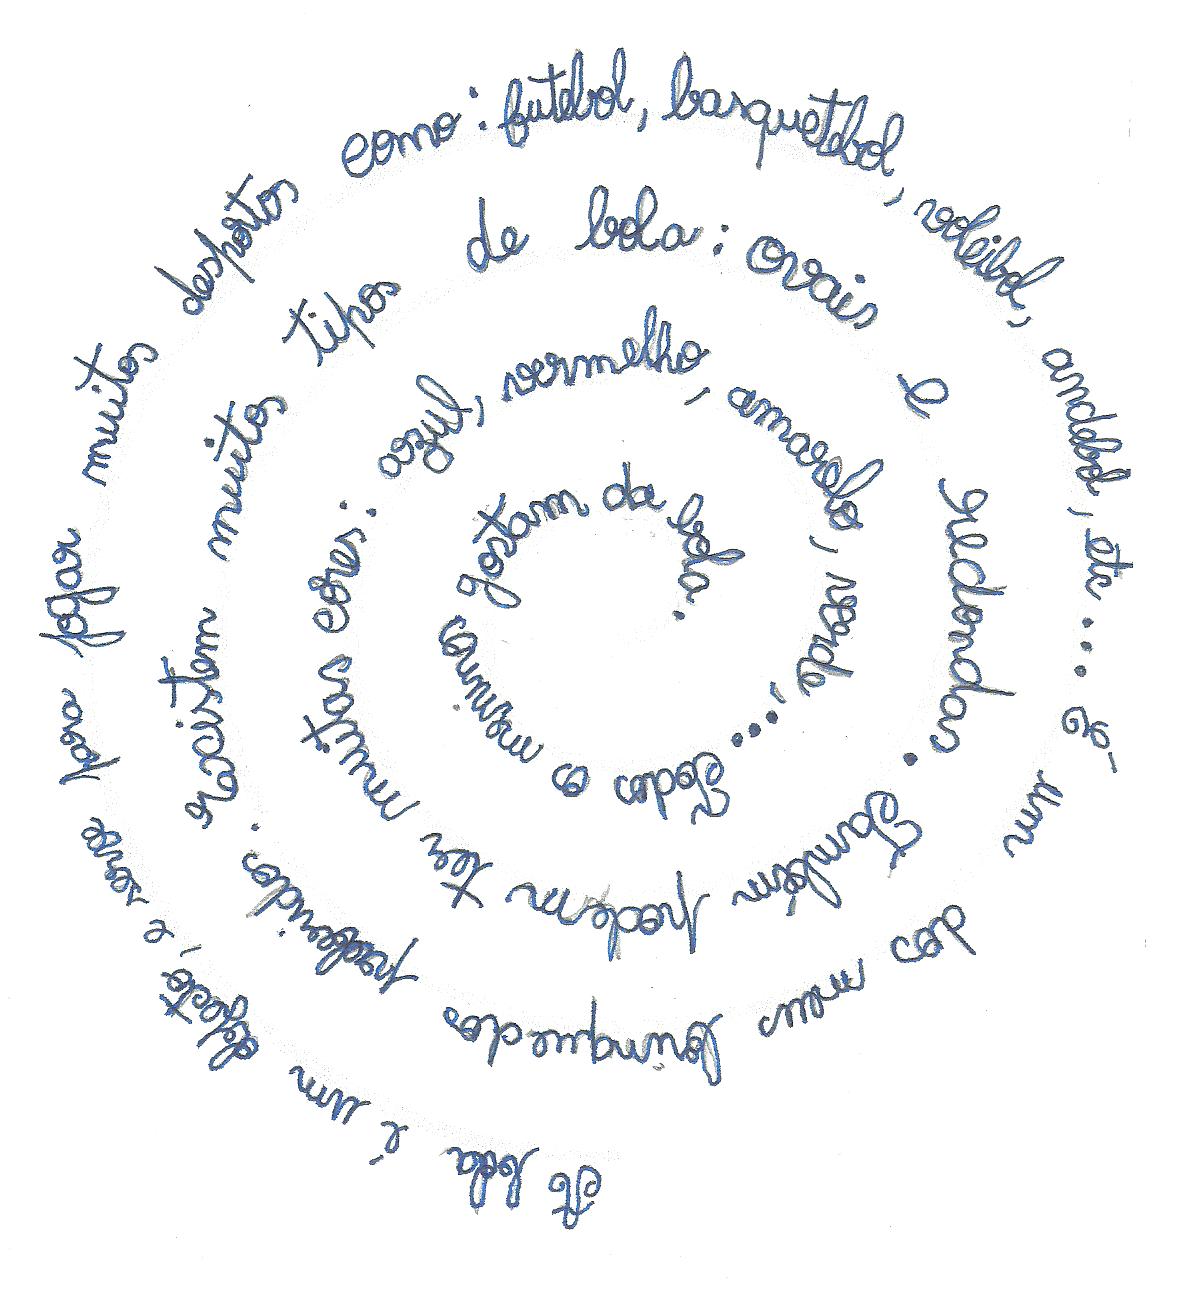 A bola é um objecto, e serve para jogar muitos desportos como: futebol, basquetebol, voleibol, andebol, etc... É um dos meus brinquedos preferidos. Existem muitos tipos de bola: ovais e redondas. Também podem ter muitas cores: azul, vermelho, amarelo, verde,... Todos os meninos gostam da bola.